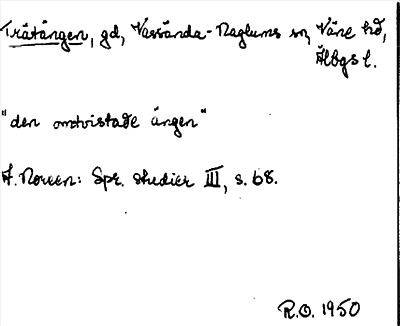 Trätången, gd, Vassända-Naglums sn, Väne hd,
Älbgs l.
"den omtvistade ängen"
A. Noreen: Spr. studier III, s. 68.
R.O. 1950